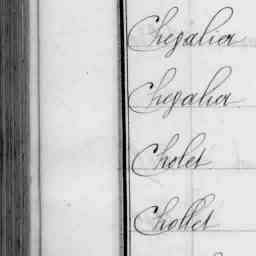 Chevalier
Chevalier
Cholet
Chollet